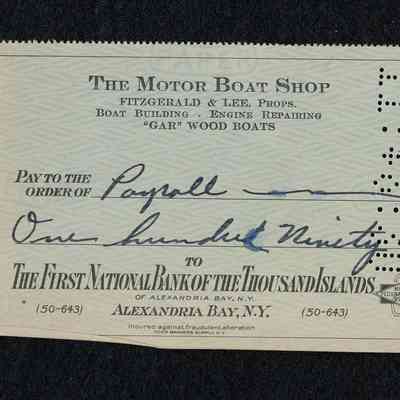 THE MOTOR BOAT SHOP
FITZGERALD & LEE, PROPS.
BOAT BUILDING - ENGINE REPAIRING
"GAR" WOOD BOATS
PAY TO THE
ORDER OF Payroll
One hundred Ninety
TO
THE FIRST NATIONAL BANK OF THE THOUSAND ISLANDS
OF ALEXANDRIA BAY, N.Y.
(50-643) ALEXANDRIA BAY, N.Y. (50-643)
Insured against fraudulent alteration